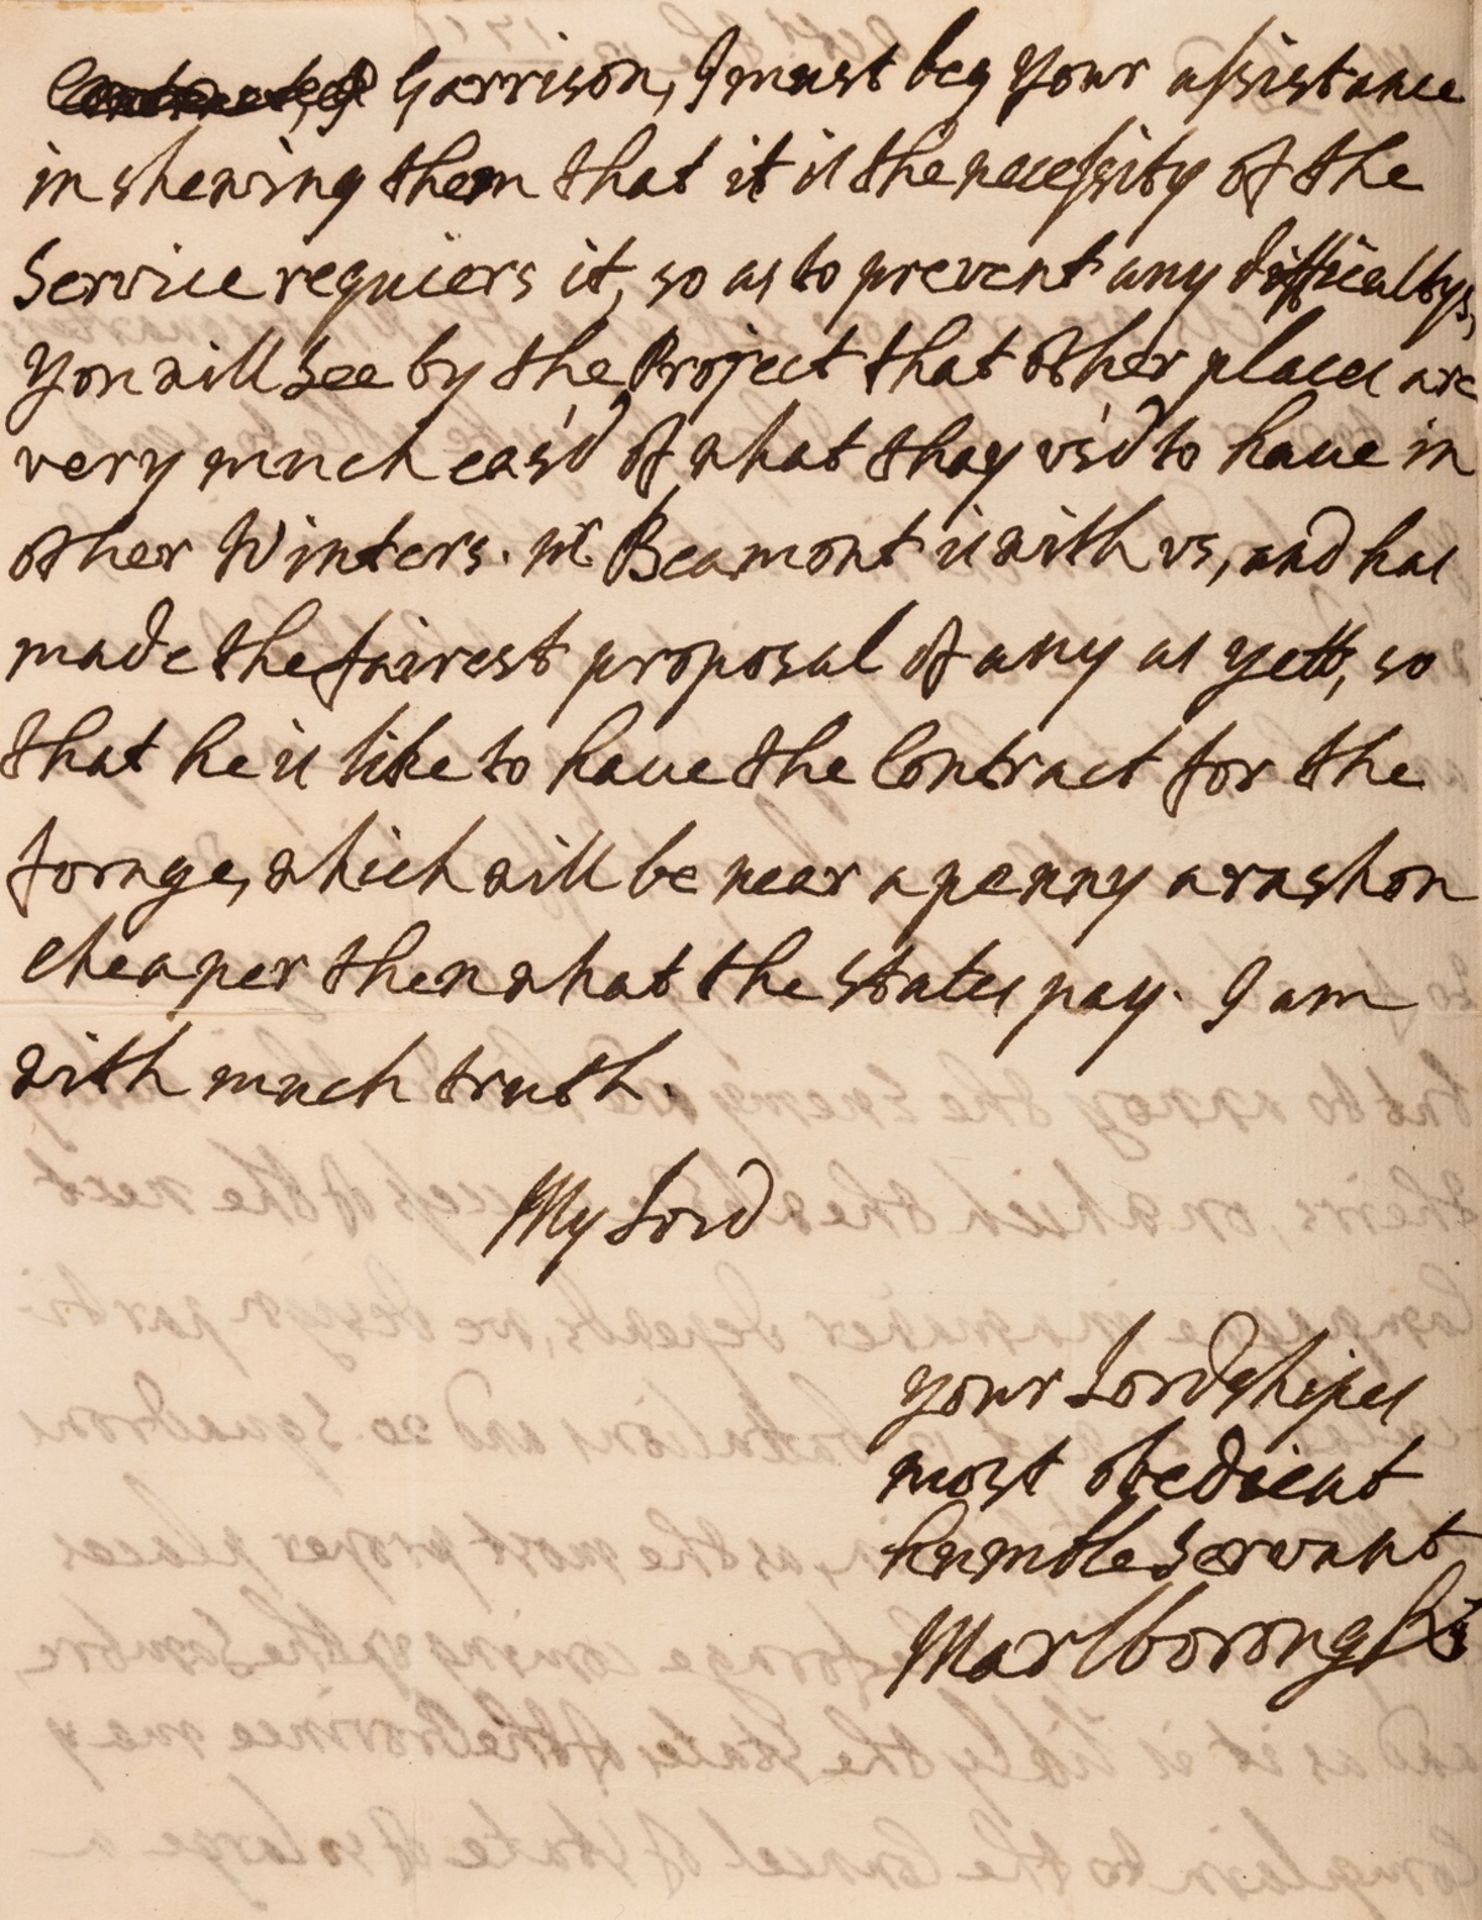 Garrison, I must beg your assistance
in shewing them that it is the necessity of the
Service requiers it, so as to prevent any difficaltys,
you will see by the Project that other places are
very much eas'd of what thay us'd to have in
other Winters. Mr Beamont is with us, and has
made the fairest proposal of any as yett, so
that he is like to have the Contract for the
forage, which will be near a penny a rashon
cheaper then what the states pay. I am
with much truth.
My Lord
your Lordshipes
most obedient
humble servant
Marlborough